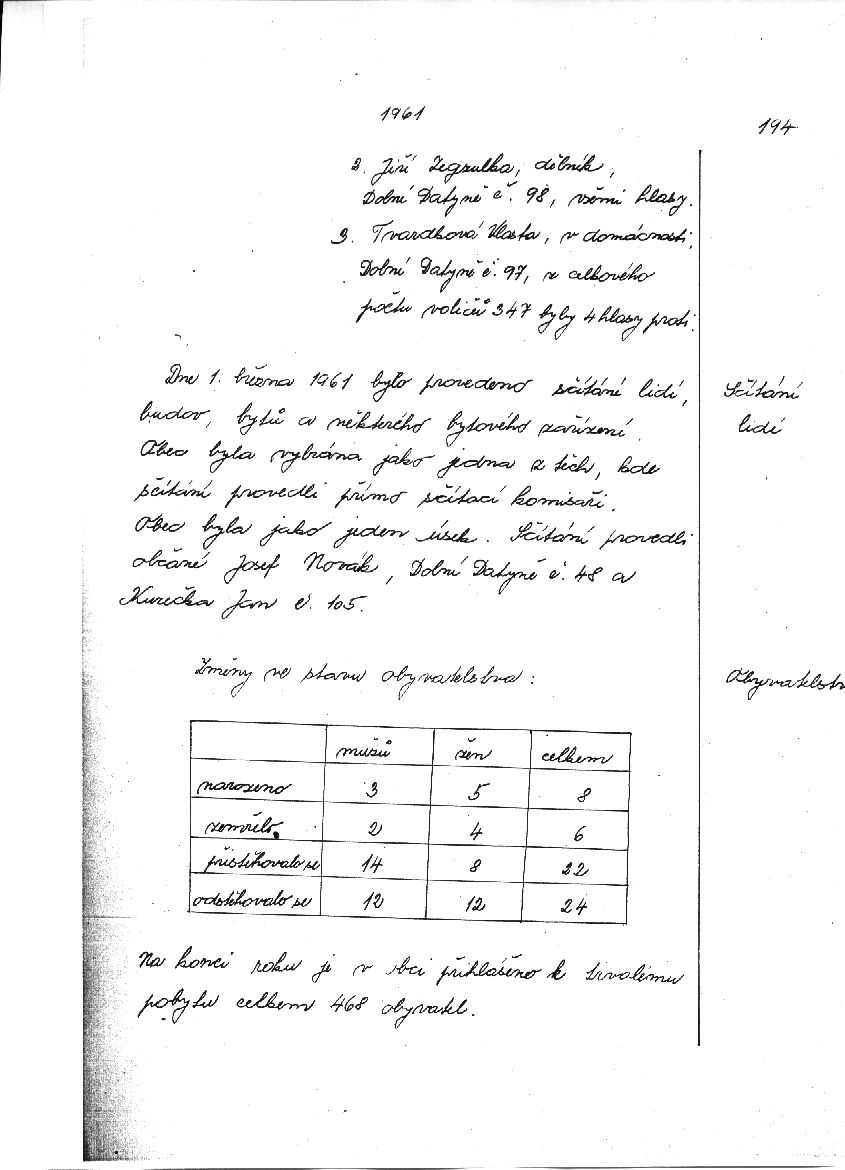 1961
194
2. Jiří Zegzulka, dělník,
Dolní Datyně č. 98, všemi hlasy.
3. Tvardková Vlasta, v domácnosti,
Dolní Datyně č. 97, z celkového
počtu voličů 347 byly 4 hlasy proti.
Dne 1. března 1961 bylo provedeno sčítání lidí,
Sčítání
budov, bytů a některého bytového zařízení.
lidí
Obec byla vybrána jako jedna z těch, kde
sčítání provedli přímo sčítací komisaři.
Obec byla jako jeden úsek. Sčítání provedli
občané Josef Novák, Dolní Datyně č. 48 a
Kurečka Jan č. 105.
Změny ve stavu obyvatelstva:
Obyvatelstv
mužů žen celkem
narozeno 3 5 8
zemřelo 2 4 6
přistěhovalo se 14 8 22
odstěhovalo se 12 12 24
Na konci roku je v obci přihlášeno k trvalému
pobytu celkem 468 obyvatel.